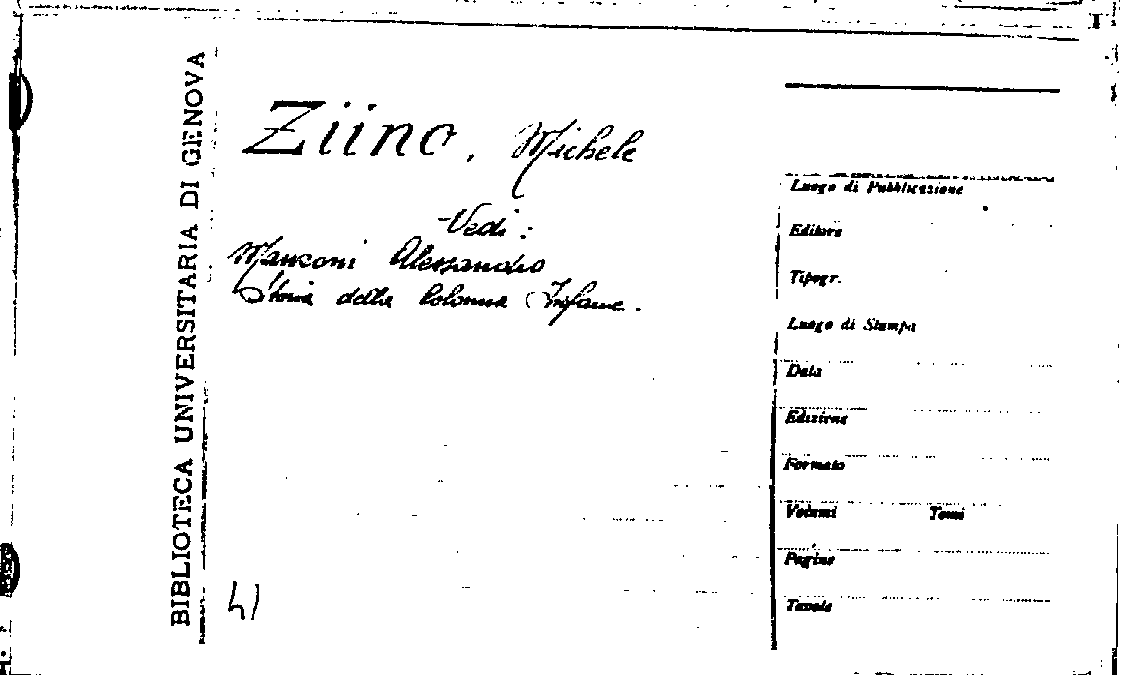 BIBLIOTECA UNIVERSITARIA DI GENOVA
Ziino, Michele
Vedi:
Manzoni Alessandro
Storia della Colonna Infame.
41
Luogo di Pubblicazione
Editore
Tipogr.
Luogo di Stampa
Data
Edizione
Formato
Volumi Tomi
Pagine
Tavole